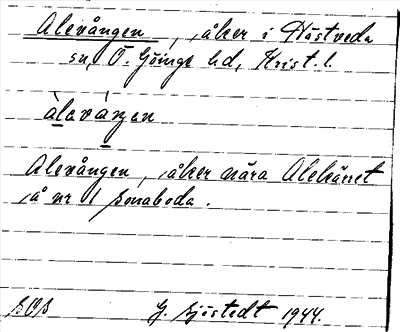 Alevången, åker i Hästveda
sn, Ö. Göinge hd, Krist. l.
àlaváŋən
Alevången, åker nära Alekärret
å nr 1
G. Sjöstedt 1944.